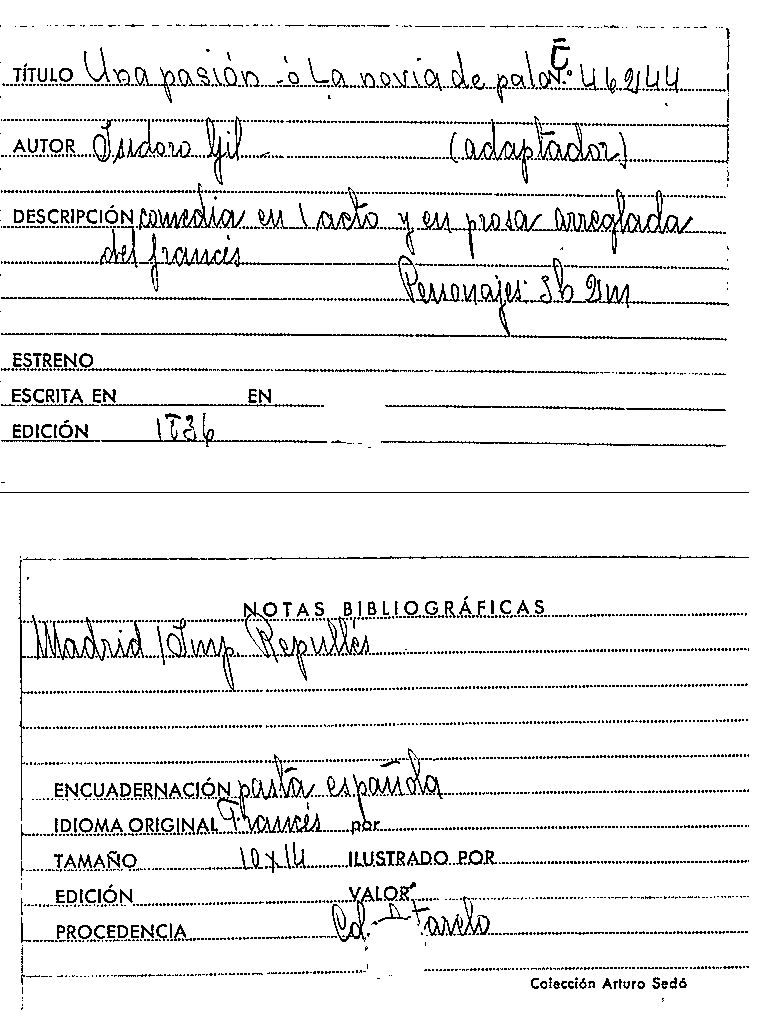 TÍTULO Una pasión ó La novia de palo N.º 46244
AUTOR Isidoro Gil (adaptador)
DESCRIPCIÓN comedia en 1 acto y en prosa arreglada
del francés
Personajes: 3h 2m
ESTRENO
ESCRITA EN EN
EDICIÓN 1836
NOTAS BIBLIOGRÁFICAS
Madrid / Imp Repullés
ENCUADERNACIÓN pasta española
IDIOMA ORIGINAL Francés por
TAMAÑO 10x14 ILUSTRADO POR
EDICIÓN VALOR
PROCEDENCIA Col.
Colección Arturo Sedó